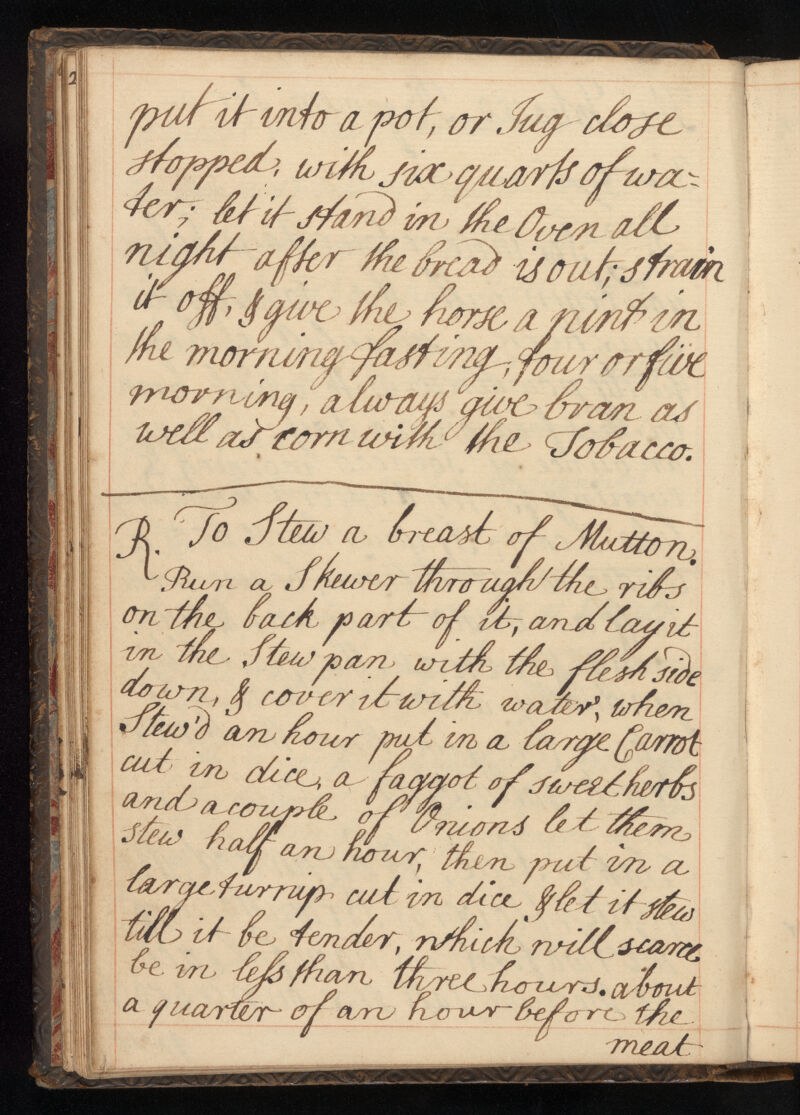 2
put it into a pot, or Jug close
stopped, with six quarts of wa=
ter; let it stand in the Oven all
night after the bread is out; strain
it off, & give the horse a pint in
the morning fasting, four or five
morning, always give bran as
well as corn with the Tobacco.
R. To Stew a breast of Mutton.
Run a Skewer through the ribs
on the back part of it, and lay it
in the Stew pan with the flesh side
down, & cover it with water, when
Stew'd an hour put in a large Carrot
cut in dice, a faggot of sweet herbs
and a couple of Onions let them
stew half an hour, then put in a
large turnip cut in dice & let it stew
till it be tender, which will scarce
be in leſs than three hours. about
a quarter of an hour before the
meat